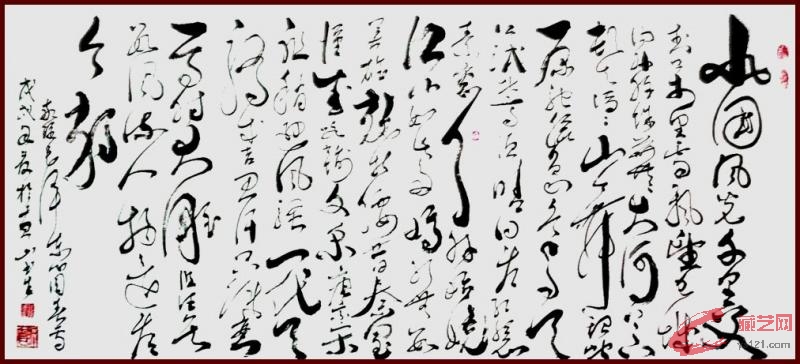 北国风光千里冰
封万里雪飘望长城
内外惟余莽莽大河上下
顿失滔滔山舞银蛇
原驰蜡象欲与天
公试比高须晴日看红装
素裹分外妖娆
江山如此多娇引无数
英雄竞折腰惜秦皇
汉武略输文采唐宗宋
祖稍逊风骚一代天
骄成吉思汗只识弯
弓射大雕俱往矣
数风流人物还看
今朝
毛泽东沁园春雪
戊戌
藏艺网